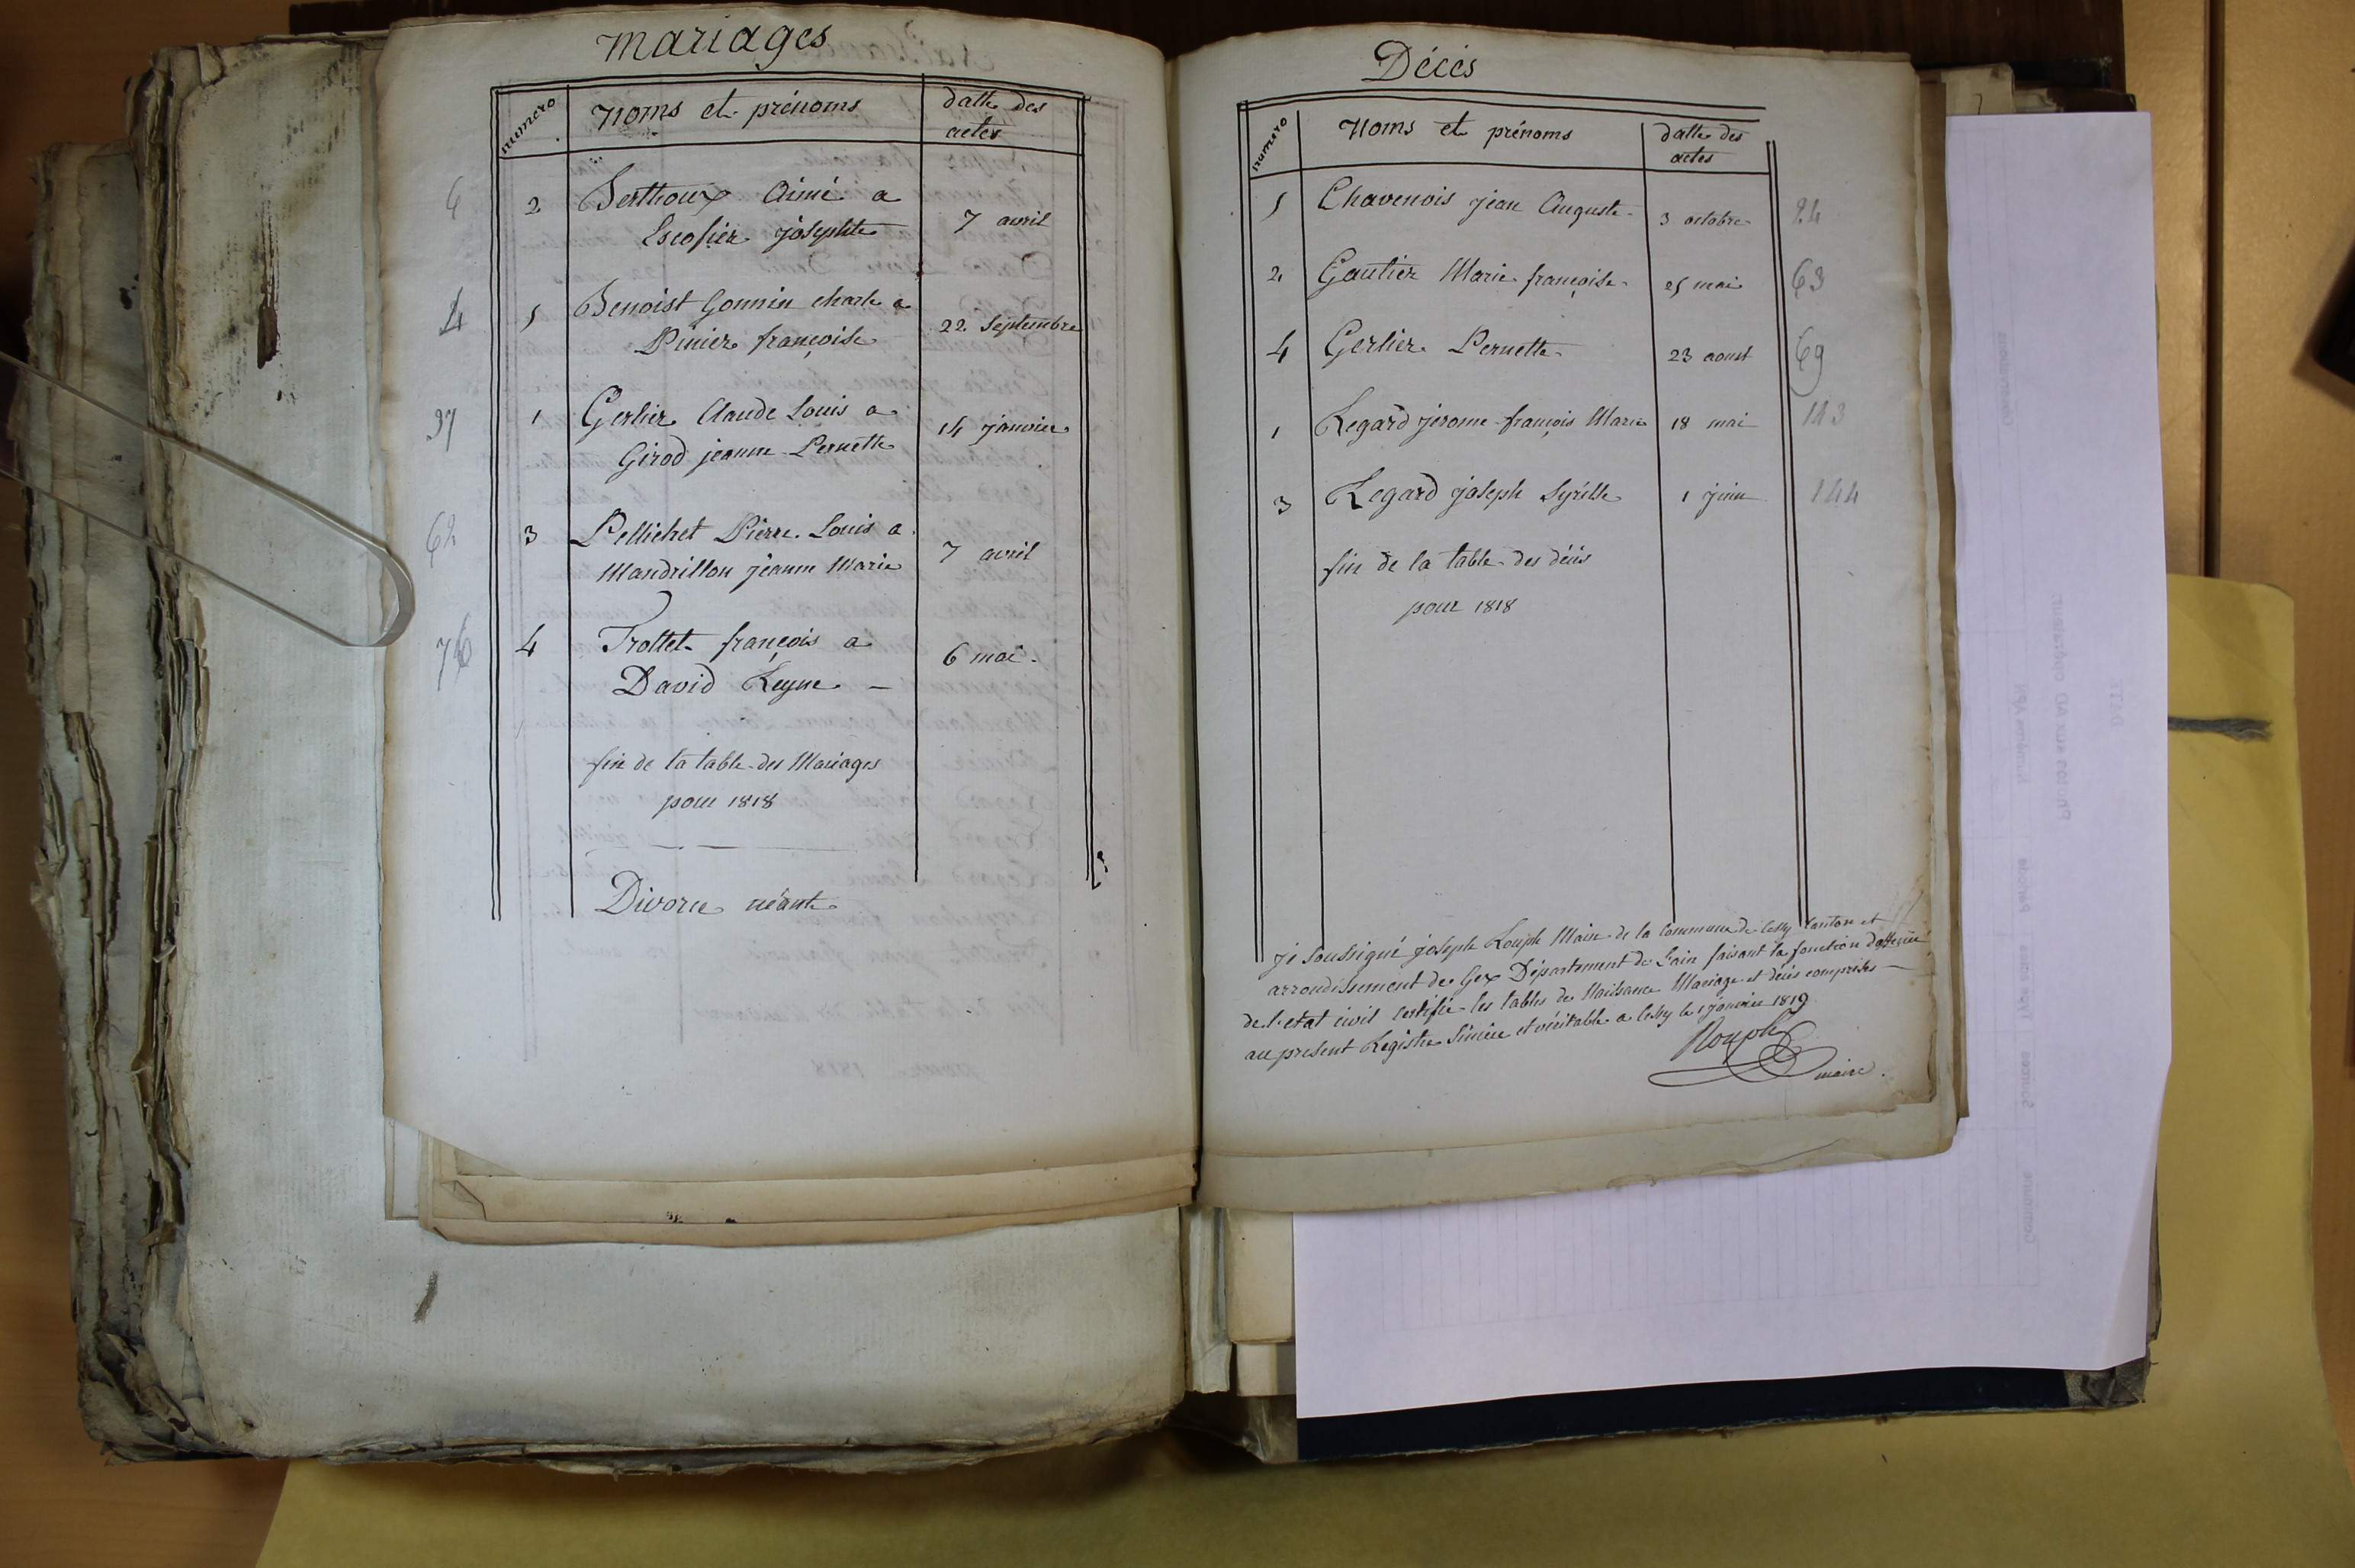 Mariages
numero
Noms et prénoms
datte des
actes
2
Berthoux Aimé a
Escofier josephte
7 avril
5
Benoist Gonnin charle a
Pinier françoise
22 Septembre
37
1
Gerlier Claude Louis a
Girod jeanne Pernette
14 janvier
62
3
Pellichet Pierre Louis a
Mandrillon jeanne Marie
7 avril
76
4
Trottet françois a
David Reyne
6 mai
fin de la table des Mariages
pour 1818
Divorce néant
Décès
numero
Noms et prénoms
datte des
actes
5
Chavenois jean Auguste
3 octobre
24
2
Gautier Marie françoise
25 mai
63
4
Gerlier Pernette
23 aoust
69
1
Regard jerome françois Marie
18 mai
143
3
Regard joseph Syrille
1 juin
144
fin de la table des décès
pour 1818
je soussigné joseph Rouph Maire de la Commune de Cessy Canton et
arrondissement de Gex Département de Lain faisant la fonction
de l'etat civil certifie les tables de Naissance Mariage et décès comprises
au présent Registre Sincère et véritable a Cessy le 1 janvier 1819
Rouph
maire